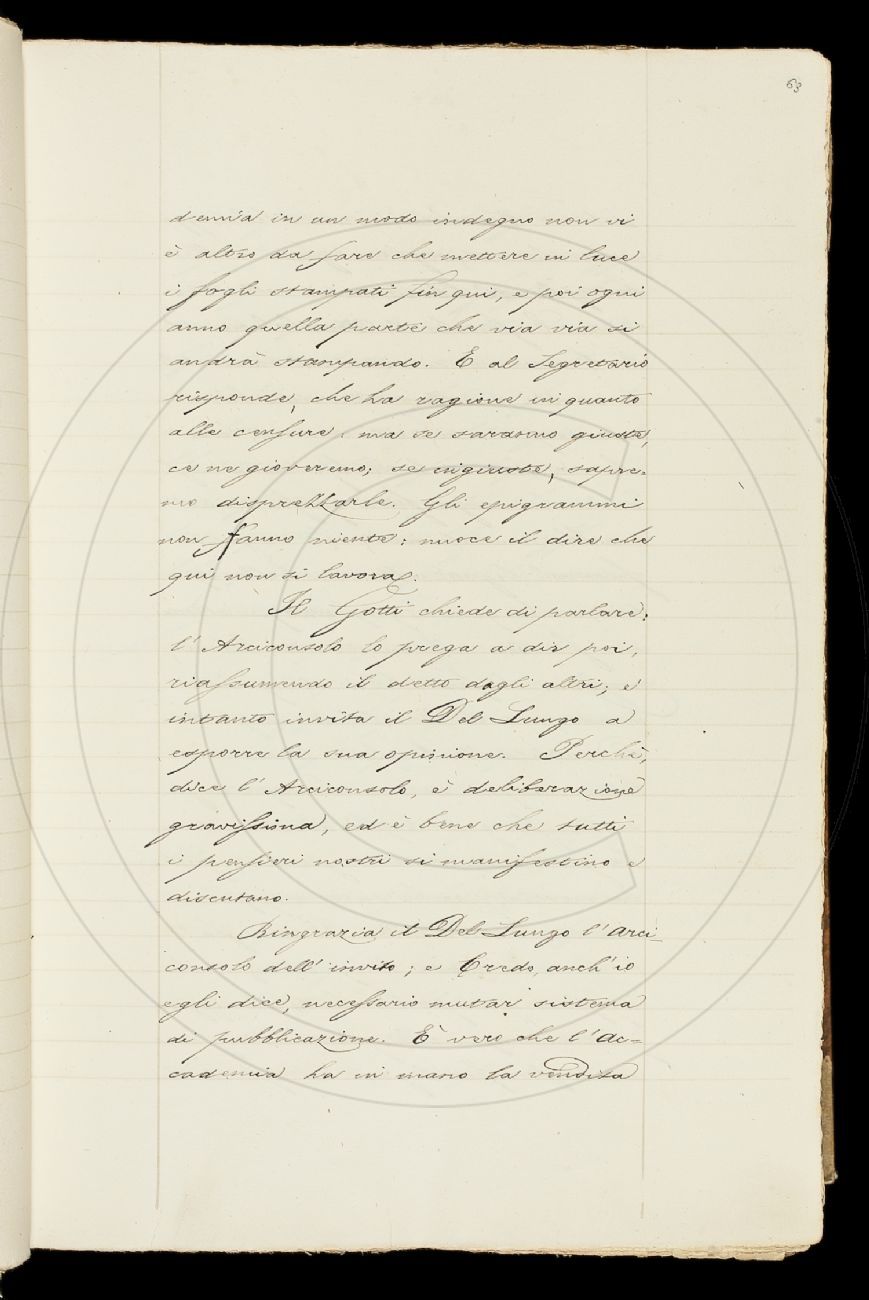 63
demia in un modo indegno non vi
è altro da fare che mettere in luce
i fogli stampati fin qui, e poi ogni
anno quella parte che via via si
andrà stampando. E al Segretario
risponde, che ha ragione in quanto
alle censure: ma se saranno giuste,
ce ne gioveremo; se ingiuste, sapre-
mo disprezzarle. Gli epigrammi
non fanno niente: nuoce il dire che
qui non si lavora.
Il Gotti chiede di parlare:
l'Arciconsolo lo prega a dir poi,
riassumendo il detto dagli altri; e
intanto invita il Del Lungo a
esporre la sua opinione. Perchè,
dice l'Arciconsolo, è deliberazione
gravissima, ed è bene che tutti
i pensieri nostri si manifestino e
discutano.
Ringrazia il Del Lungo l'Arci-
consolo dell'invito; e Credo, anch'io
egli dice, necessario mutar sistema
di pubblicazione. È vero che l'Ac=
cademia ha in mano la vendita